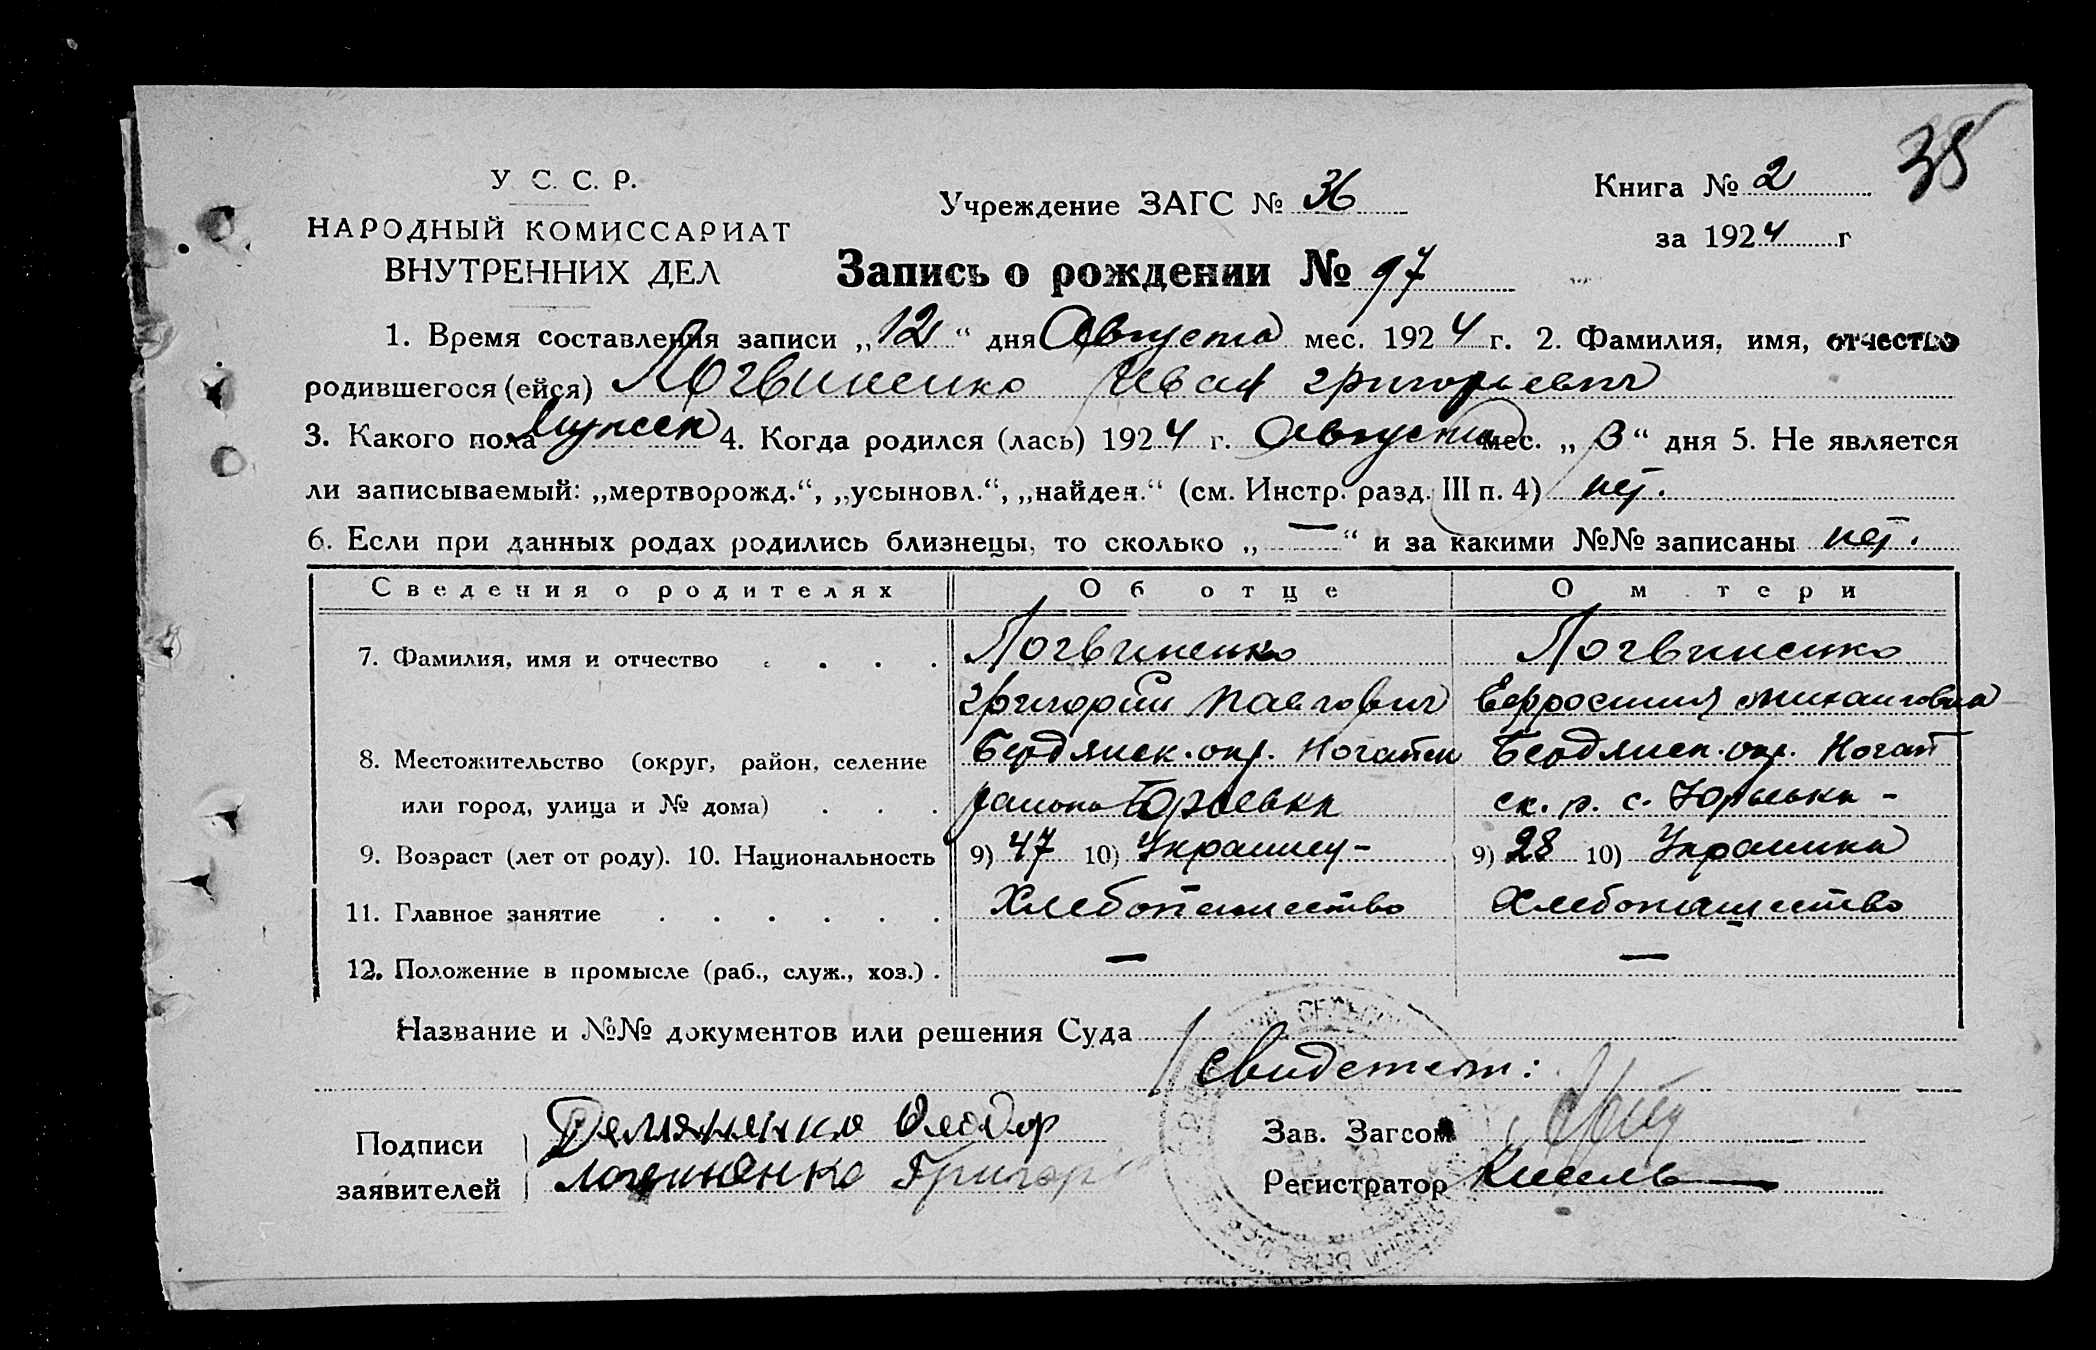 35
У. С. С. Р.
НАРОДНЫЙ КОМИССАРИАТ
ВНУТРЕННИХ ДЕЛ
Учреждение ЗАГС № 36
Книга № 2
за 1924 г
Запись о рождении № 97
1. Время составления записи „12“ дня Августа мес. 1924 г. 2. Фамилия, имя, отчество
родившегося (ейся) Логвиненко Иван Григорьевич
3. Какого пола Мужск 4. Когда родился (лась) 1924 г. Августа мес. „3“ дня 5. Не является
ли записываемый: „мертворожд.“, „усыновл.“, „найден.“ (см. Инстр. разд. III п. 4) нет.
6. Если при данных родах родились близнецы, то сколько „—“ и за какими №№ записаны нет.
Сведения о родителях Об отце О м тери
7. Фамилия, имя и отчество . . . . Логвиненко Логвиненко
Григорий Павлович Ефросиния Михайловна
8. Местожительство (округ, район, селение Бердянск. окр. Ногайск Бердянск. окр. Ногай
или город, улица и № дома) . . . района Юрьевка ск. р. с. Юрьевка -
9. Возраст (лет от роду). 10. Национальность 9) 47 10) Украинец - 9) 28 10) Украинка
11. Главное занятие . . . . . . Хлебопашество Хлебопашество
12. Положение в промысле (раб., служ., хоз.) . — —
Название и №№ документов или решения Суда
Свидетели:
Подписи
заявителей
Логвиненко Григор
Зав. Загсом
Регистратор